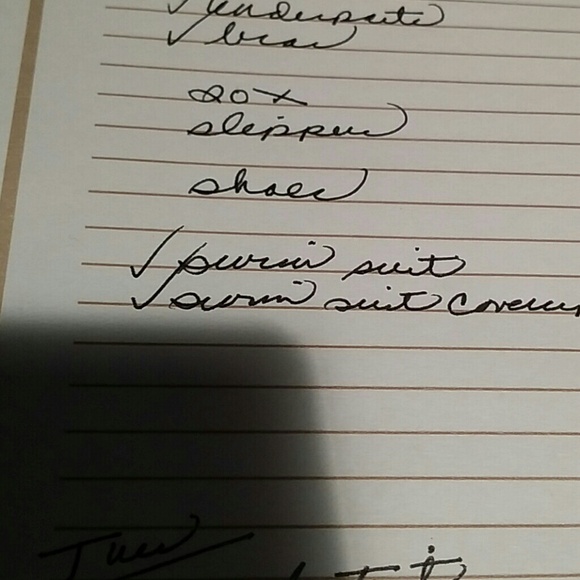 ✓ underpants
✓ bras
sox
slippers
shoes
✓ swim suit
✓ swim suit coveru
Tues